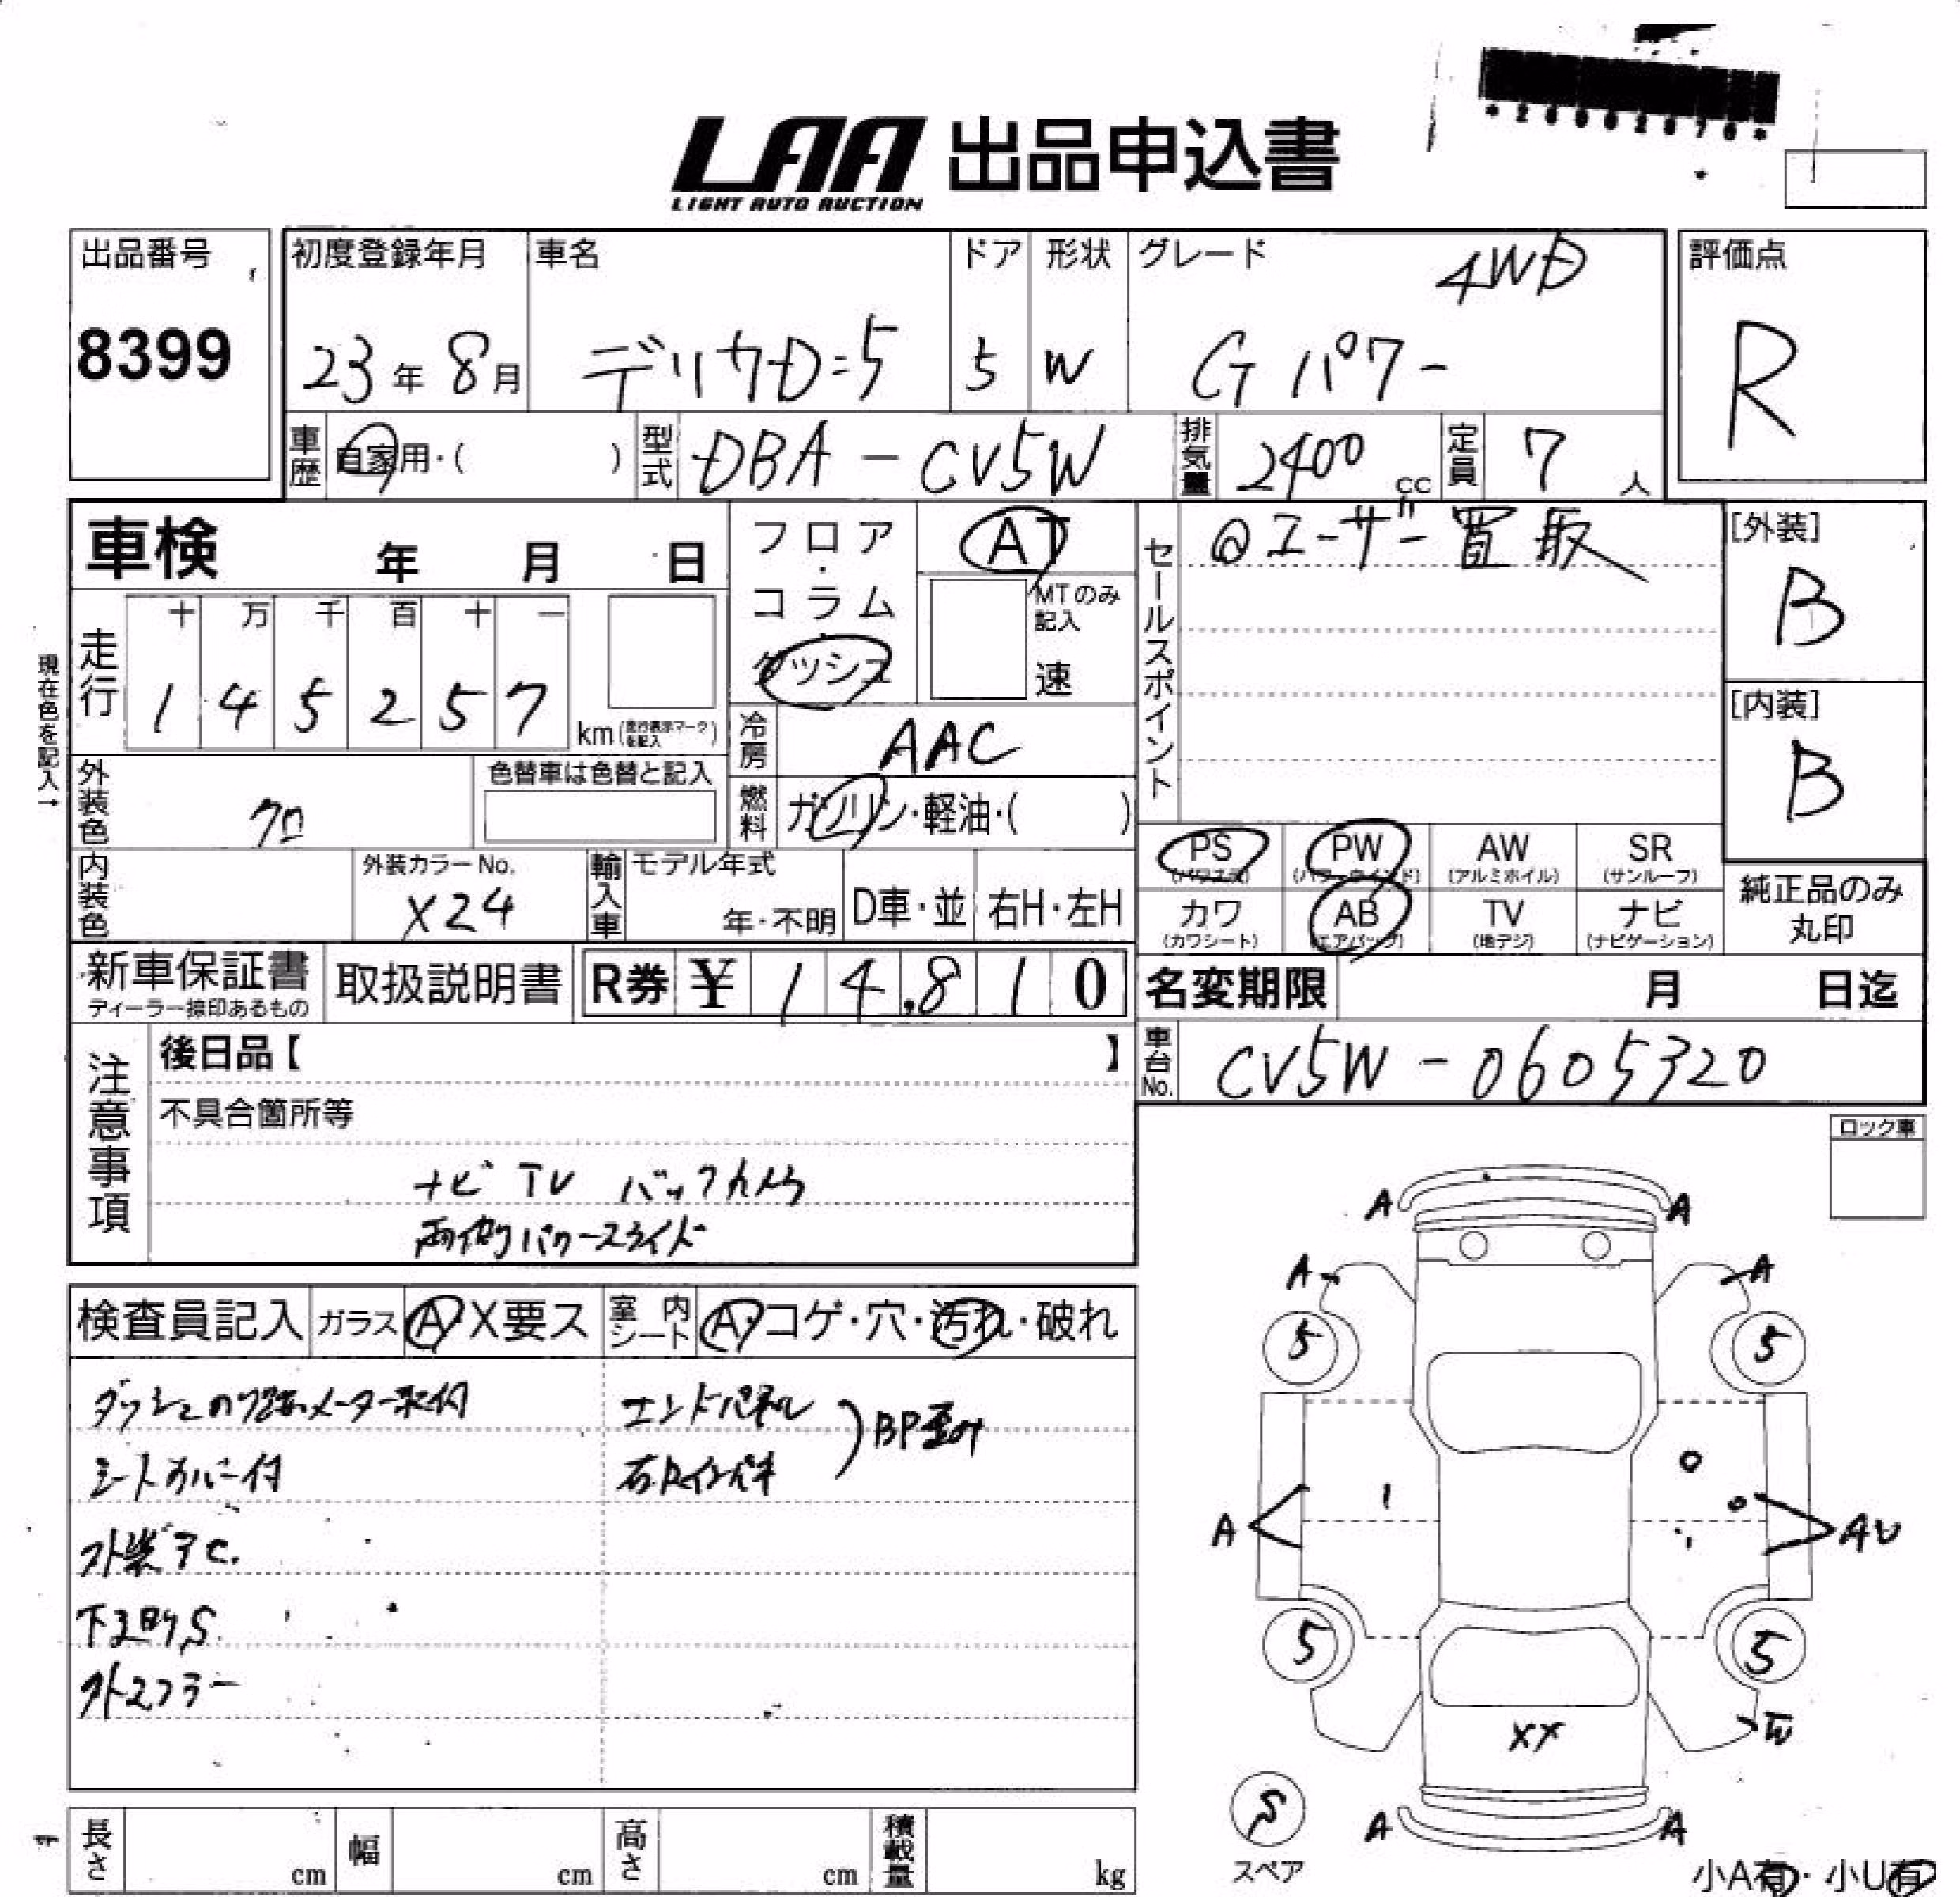 LAA 出品申込書
LIGHT AUTO AUCTION
出品番号
8399
初度登録年月
23年 8月
車名
デリカD:5
ドア
5
形状
W
グレード
4WD
Gパワー
評価点
R
車歴
自家用・( )
型式
DBA - CV5W
排気量
2400 cc
定員
7 人
車検 年 月 日
フロア・コラム・ダッシュ
AT
MTのみ記入
速
セールスポイント
@ユーザー買取
[外装]
B
[内装]
B
現在色を記入→
走行
十 万 千 百 十 一
1 4 5 2 5 7
km(走行表示マークを記入)
冷房
AAC
燃料
ガソリン・軽油・( )
外装色
クロ
色替車は色替と記入
内装色
外装カラーNo.
X24
輸入車
モデル年式
年・不明
D車・並
右H・左H
PS (パワステ)
PW (パワーウインド)
AW (アルミホイル)
SR (サンルーフ)
カワ (カワシート)
AB (エアバッグ)
TV (地デジ)
ナビ (ナビゲーション)
純正品のみ丸印
新車保証書
ディーラー捺印あるもの
取扱説明書
R券 ¥ 14,810
名変期限 月 日迄
車台No.
CV5W - 0605320
注意事項
後日品【 】
不具合箇所等
ナビ TV バックカメラ
両側パワースライド
ロック車
検査員記入
ガラス
A・X要ス
室内シート
A・コゲ・穴・汚れ・破れ
シートカバー付
エンドパネル
BP歪み
外マフラー
A A
A A
5 5
A AU
5 5
XX W
S
スペア
A A
小A有・小U有
長さ cm
幅 cm
高さ cm
積載量 kg